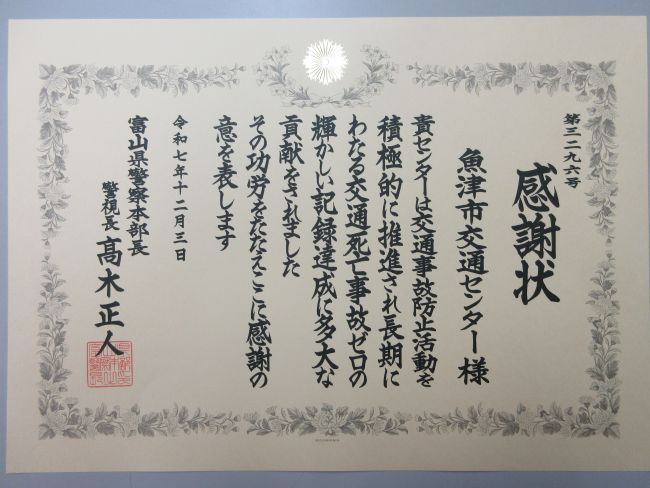 第三二九六号
感謝状
魚津市交通センター 様
貴センターは交通事故防止活動を
積極的に推進され長期に
わたる交通死亡事故ゼロの
輝かしい記録達成に多大な
貢献をされました
その功労をたたえここに感謝の
意を表します
令和七年十二月三日
富山県警察本部長
警視長 高木正人